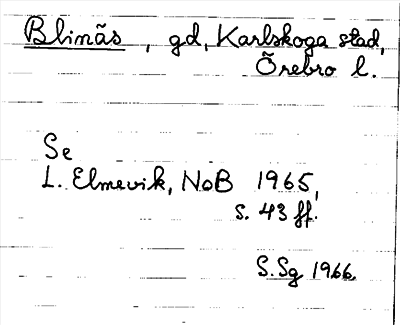 Blinäs, gd, Karlskoga stad,
Örebro l.
Se
L. Elmevik, NoB 1965,
s. 43 ff.
S.Sg 1966